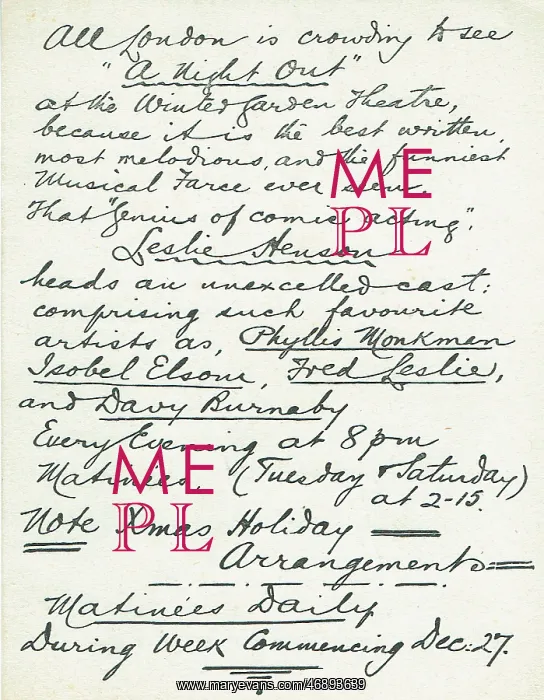 All London is crowding to see
"A Night Out"
at the Winter Garden Theatre,
because it is the best written,
most melodious, and the funniest
Musical Farce ever seen.
That "genius of comic acting",
Leslie Henson
heads an unexcelled cast:
comprising such favourite
artists as, Phyllis Monkman
Isobel Elsom, Fred Leslie,
and Davy Burnaby
Every Evening at 8 pm
Matinées. (Tuesday & Saturday)
at 2-15.
Note Xmas Holiday
Arrangements
Matinées Daily
During Week Commencing Dec: 27.
ME
PL
ME
PL
www.maryevans.com/46893639